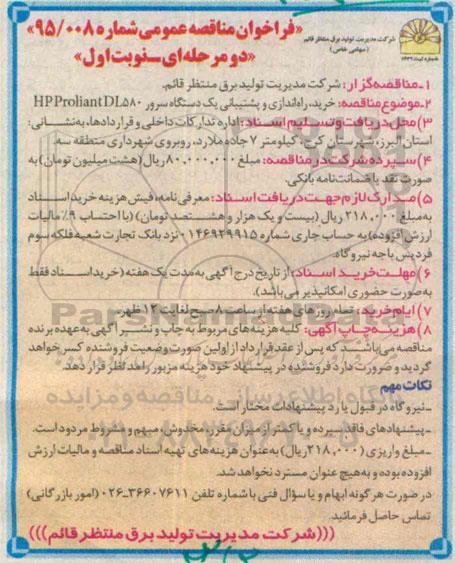 شرکت مدیریت تولید برق منتظر قائم
(سهامی خاص)
«فراخوان مناقصه عمومی شماره ۹۵/۰۰۸»
«دو مرحله‌ای ـ نوبت اول»
۱ـ مناقصه‌گزار: شرکت مدیریت تولید برق منتظر قائم.
۲ـ موضوع مناقصه: خرید، راه‌اندازی و پشتیبانی یک دستگاه سرور HP Proliant DL۵۸۰
۳) محل دریافت و تسلیم اسناد: اداره تدارکات داخلی و قراردادها، به‌نشانی:
استان البرز، شهرستان کرج، کیلومتر ۷ جاده ملارد، روبروی شهرداری منطقه سه.
۴) سپرده شرکت در مناقصه: مبلغ ۸۰,۰۰۰,۰۰۰ ریال (هشت میلیون تومان) به
صورت نقد یا ضمانت‌نامه بانکی.
۵) مدارک لازم جهت دریافت اسناد: معرفی‌نامه، فیش هزینه خرید اسناد
به مبلغ ۲۱۸,۰۰۰ ریال (بیست و یک هزار و هشتصد تومان) (با احتساب ۹٪ مالیات
ارزش افزوده) به حساب جاری شماره ۰۱۴۶۹۲۹۹۱۵ نزد بانک تجارت شعبه فلکه سوم
فردیس یا جه نیروگاه.
۶) مهلت خرید اسناد: از تاریخ درج آگهی به مدت یک هفته (خرید اسناد فقط
به صورت حضوری امکانپذیر می‌باشد).
۷) ایام خرید: تمام روزهای هفته از ساعت ۸ صبح لغایت ۱۲ ظهر.
۸) هزینه چاپ آگهی: کلیه هزینه‌های مربوط به چاپ و نشر آگهی به عهده برنده
مناقصه می‌باشد که پس از عقد قرارداد از اولین صورت وضعیت فروشنده کسر خواهد
گردید و ضرورت دارد فروشنده در پیشنهاد خود هزینه مزبور را مدنظر قرار دهد.
نکات مهم
ـ نیروگاه در قبول یا رد پیشنهادات مختار است.
ـ پیشنهادهای فاقد سپرده و یا کمتر از میزان مقرر، مخدوش، مبهم و مشروط مردود است.
ـ مبلغ واریزی (۲۱۸,۰۰۰ ریال) به عنوان هزینه‌های تهیه اسناد مناقصه و مالیات ارزش
افزوده بوده و به هیچ عنوان مسترد نخواهد شد.
در صورت هر گونه ابهام و یا سؤال فنی با شماره تلفن ۳۶۶۰۷۶۱۱-۰۲۶ (امور بازرگانی)
تماس حاصل فرمائید.
(((شرکت مدیریت تولید برق منتظر قائم)))